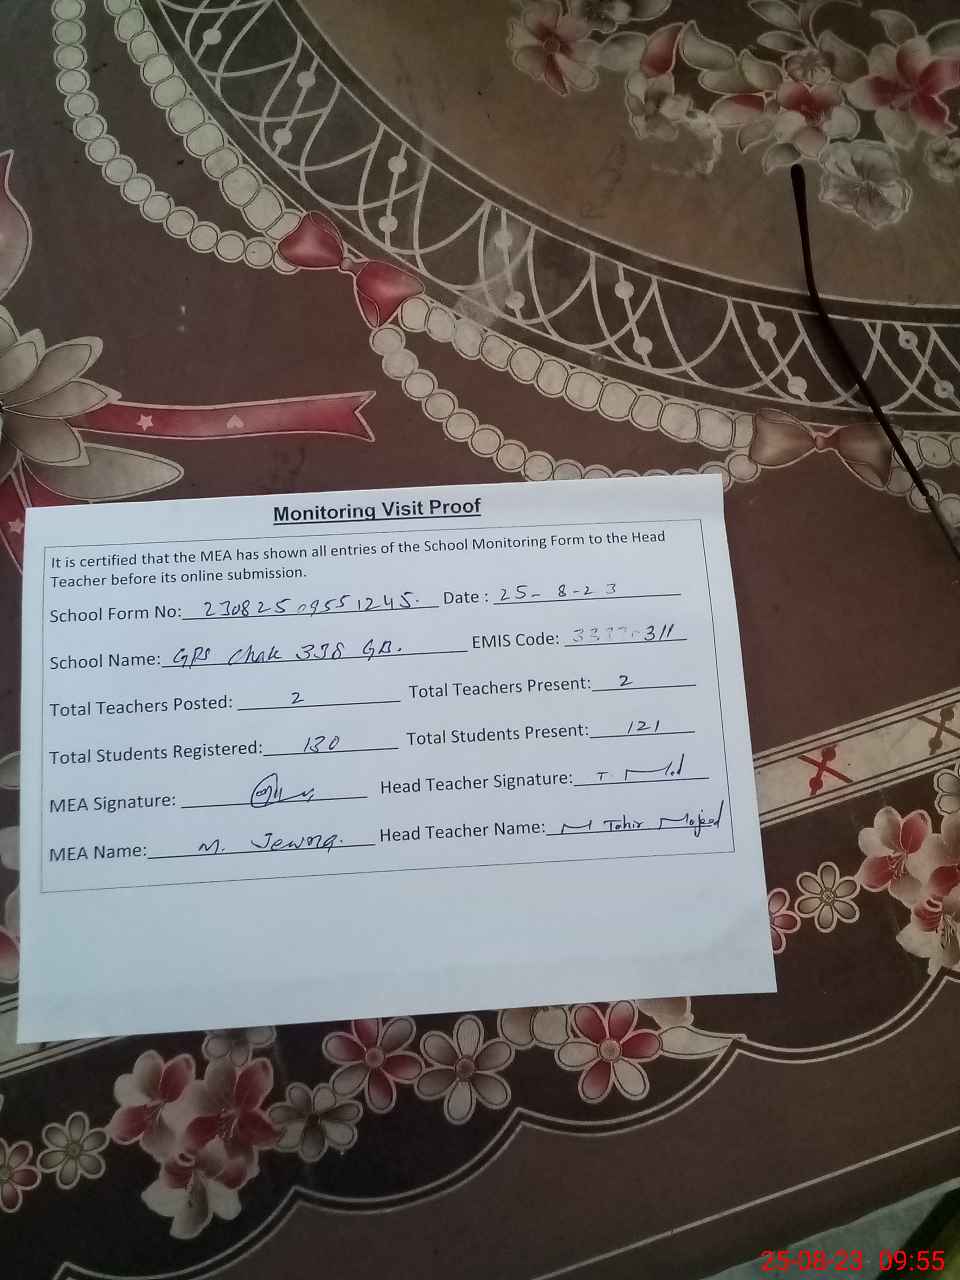 Monitoring Visit Proof
It is certified that the MEA has shown all entries of the School Monitoring Form to the Head
Teacher before its online submission.
School Form No: 23082509551245. Date : 25- 8-23
School Name: GPS Chak 338 GB. EMIS Code: 311
Total Teachers Posted: 2 Total Teachers Present: 2
Total Students Registered: 130 Total Students Present: 121
MEA Signature: Head Teacher Signature:
MEA Name: M. Head Teacher Name: M Tahir Majeed
25-08-23 09:55